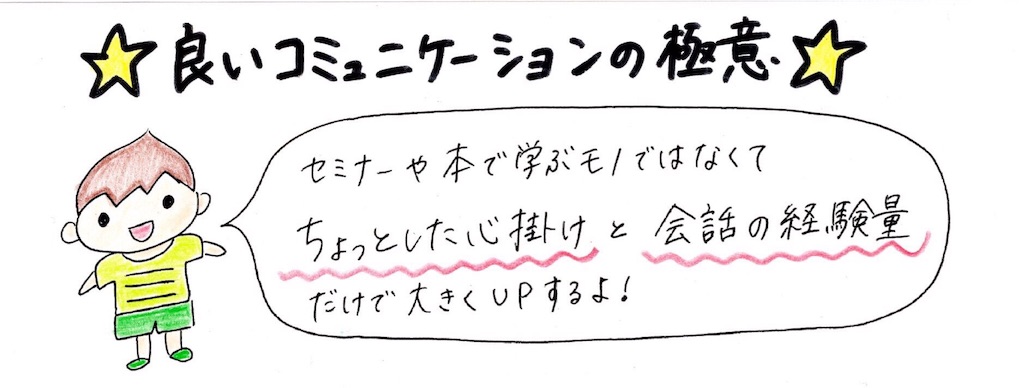 良いコミュニケーションの極意
セミナーや本で学ぶモノではなくて
ちょっとした心掛けと会話の経験量
だけで大きくUPするよ!